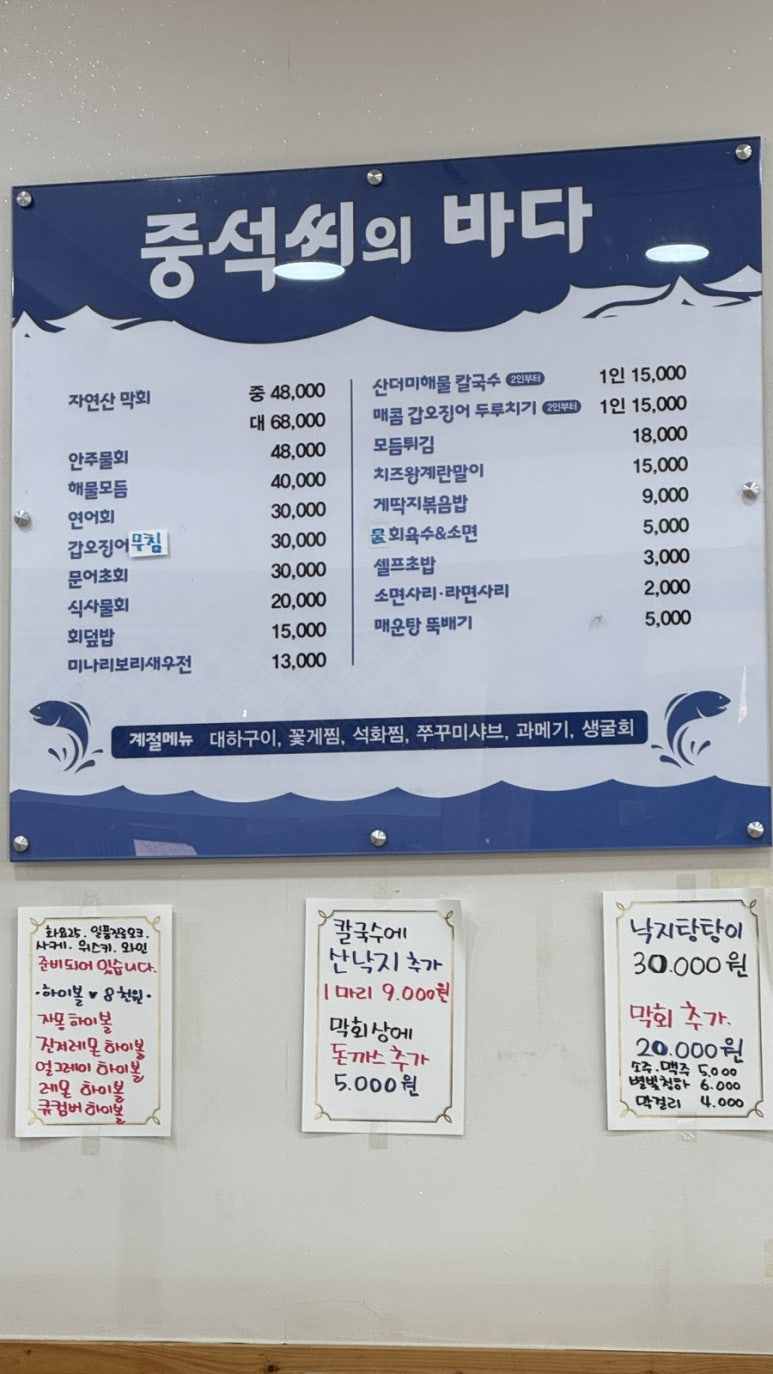 중석씨의 바다
자연산 막회 중 48,000
대 68,000
안주물회 48,000
해물모듬 40,000
연어회 30,000
갑오징어무침 30,000
문어초회 30,000
식사물회 20,000
회덮밥 15,000
미나리보리새우전 13,000
산더미해물 칼국수 2인부터 1인 15,000
매콤 갑오징어 두루치기 2인부터 1인 15,000
모듬튀김 18,000
치즈왕계란말이 15,000
게딱지볶음밥 9,000
물회육수&소면 5,000
셀프초밥 3,000
소면사리·라면사리 2,000
매운탕 뚝배기 5,000
계절메뉴 대하구이, 꽃게찜, 석화찜, 쭈꾸미샤브, 과메기, 생굴회
화요25. 일품진로오크.
사케. 위스키. 와인
준비되어 있습니다.
·하이볼 ♥ 8천원·
자몽하이볼
진저레몬하이볼
얼그레이 하이볼
레몬 하이볼
큐컴버하이볼
칼국수에
산낙지 추가
1마리 9.000원
막회상에
돈까스 추가
5.000원
낙지탕탕이
30.000원
막회 추가.
20.000원
소주.맥주 5.000
별빛청하 6.000
막걸리 4.000